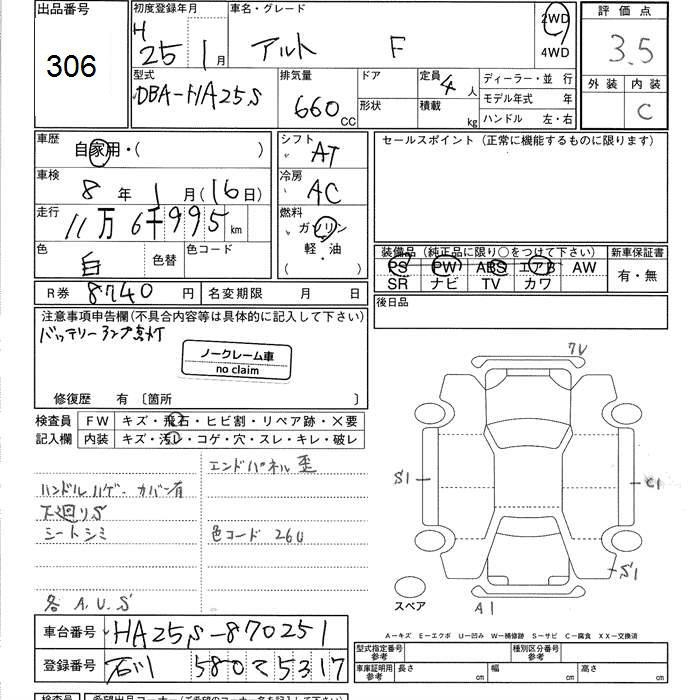 出品番号 初度登録年月 車名・グレード 2WD 評価点
306 H 25年 1月 アルト F 4WD 3.5
型式 排気量 ドア 定員 4人 ディーラー・並行 外装 内装
DBA-HA25S 660 CC 形状 積載 kg モデル年式 年 C
ハンドル 左・右
車歴 自家用・( ) シフト AT セールスポイント(正常に機能するものに限ります)
車検 8年 1月(16日) 冷房 AC
走行 11万6千995 km 燃料 ガソリン
色 白 色替 色コード 軽・油 装備品(純正品に限り○をつけて下さい) 新車保証書
( ) PS PW ABS エアB AW 有・無
R券 8740円 名変期限 月 日 SR ナビ TV カワ
注意事項申告欄(不具合内容等は具体的に記入して下さい) 後日品
バッテリーランプ点灯
ノークレーム車
no claim
修復歴 有 〔箇所 〕
検査員 FW キズ・飛石・ヒビ割・リペア跡・×要
記入欄 内装 キズ・汚レ・コゲ・穴・スレ・キレ・破レ
7V
エンドパネル歪
S1 C1
ハンドルハゲ・カバー有
下廻りS
シートシミ 色コード 26U
S1
各A.U.S スペア A1
車台番号 HA25S-870251 A-キズ E-エクボ U-凹み W-補修跡 S-サビ C-腐食 XX-交換済
登録番号 石川 580 て 5317 型式指定番号 参考 種別区分番号 参考
車庫証明用 参考 長さ cm 幅 cm 高さ cm